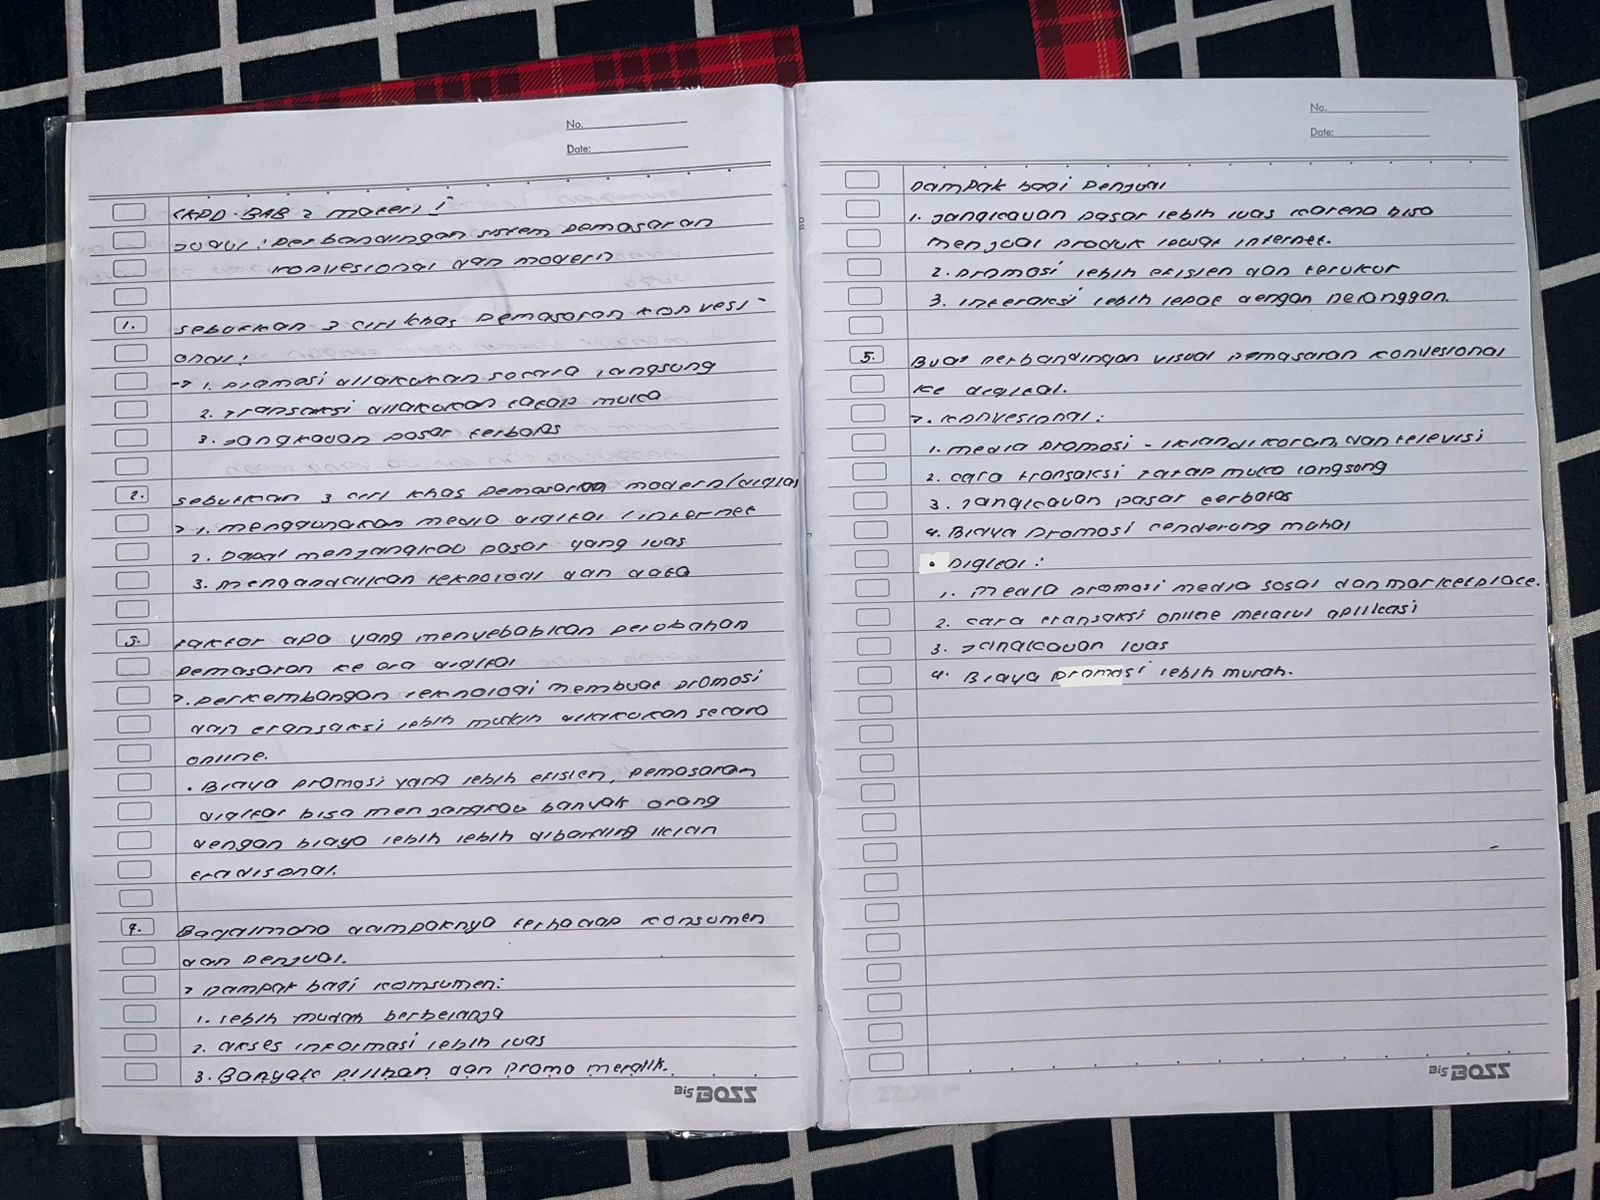 No.
Date:
LKPD. BAB 2 materi 1
Judul : Perbandingan sistem Pemasaran
Konvesional dan modern
1. Sebutkan 3 ciri khas Pemasaran Konvesi-
onal!
-> 1. Promosi dilakukan secara langsung
2. Transaksi dilakukan tatap muka
3. Jangkauan pasar terbatas
2. Sebutkan 3 ciri khas Pemasaran modern/digital
> 1. menggunakan media digital / internet
2. Dapat menjangkau pasar yang luas
3. mengandalkan teknologi dan data
3. faktor apa yang menyebabkan perubahan
Pemasaran ke era digital
>. Perkembangan teknologi membuat promosi
dan transaksi lebih dilakukan secara
online.
. Biaya promosi yang lebih efisien, pemasaran
digital bisa menjangkau banyak orang
dengan biaya lebih lebih dibanding iklan
tradisonal.
4. Bagaimana dampaknya terhadap konsumen
dan Penjual.
> Dampak bagi komsumen:
1. lebih mudah berbelanja
2. akses informasi lebih luas
3. Banyak pilihan dan promo
Big BOSS
No.
Date:
Dampak bagi Penjual
1. Jangkauan pasar lebih luas karena bisa
menjual produk lewat internet.
2. promosi lebih efisien dan terukur
3. interaksi lebih dengan pelanggan.
5. Buat perbandingan visual pemasaran konvesional
ke digital.
>. Konvesional :
1. media promosi - iklan di koran, dan televisi
2. cara transaksi tatap muka langsong
3. Jangkauan pasar terbatas
4. Biaya promosi cenderung mahal
• Digital :
1. media promosi media sosal dan marketplace.
2. cara transaksi online melalui aplikasi
3. Jangkauan luas
4. Biaya promosi lebih murah.
Big BOSS